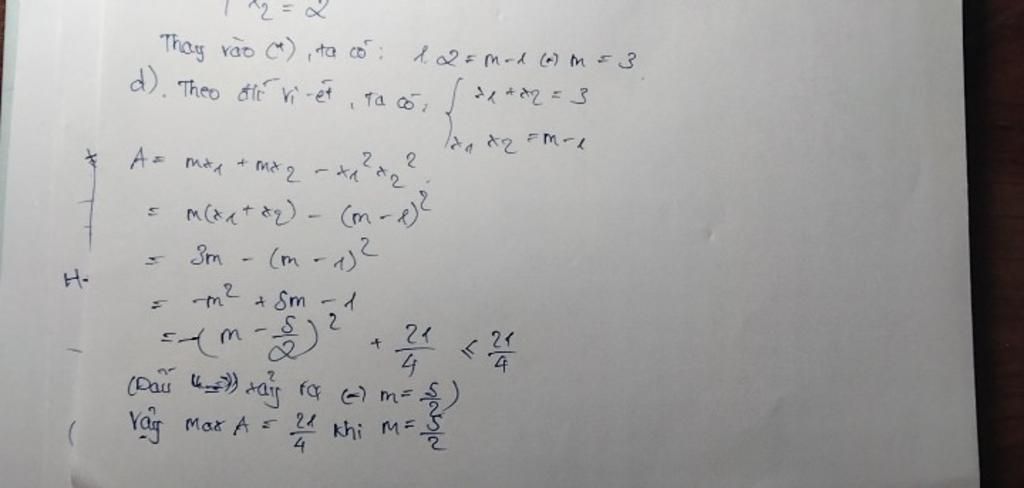 x2 = 2
Thay vào (*), ta có: 1.2 = m-1 (=) m = 3
d). Theo đlí vi-ét, ta có: { x1 + x2 = 3
x1 x2 = m-1
A = mx1 + mx2 - x1²x2²
= m(x1 + x2) - (m-1)²
= 3m - (m-1)²
H-
= -m² + 5m - 1
= -(m - 5/2)² + 21/4 ≤ 21/4
(Dấu "=" xảy ra (=) m = 5/2)
Vậy max A = 21/4 khi m = 5/2